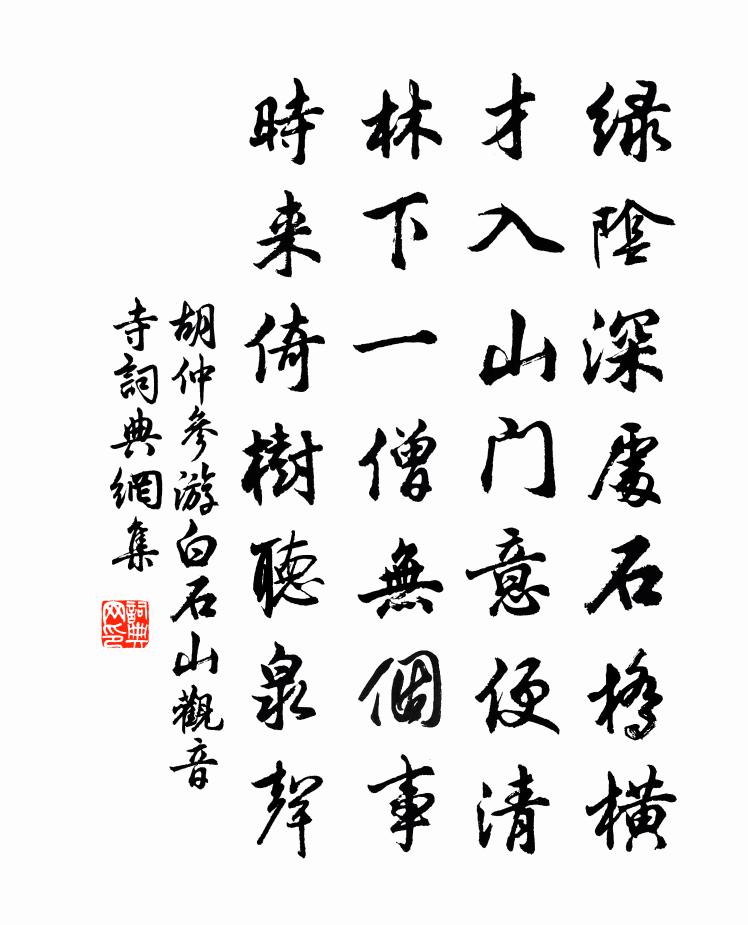 緑陰深處石橋橫
才入山門意便清
林下一僧無個事
時来倚樹聽泉聲
胡仲參游白石山觀音
寺詞典網集
詞典
网印